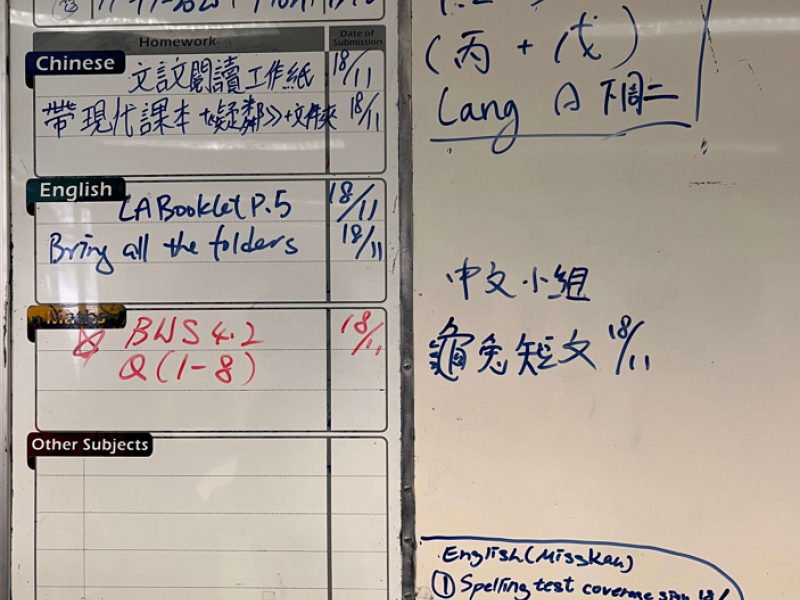 Homework
Date of Submission
Chinese
文言文閱讀工作紙 18/11
帶現代課本 18/11
English
LA Booklet P.5 18/11
Bring all the folders 18/11
Maths
BWS 4.2 18/11
Q(1-8)
Other Subjects
(丙 + 戊)
Lang 下周二
中文小組
龜兔短文 18/11
English (Miss Kan)
① Spelling test